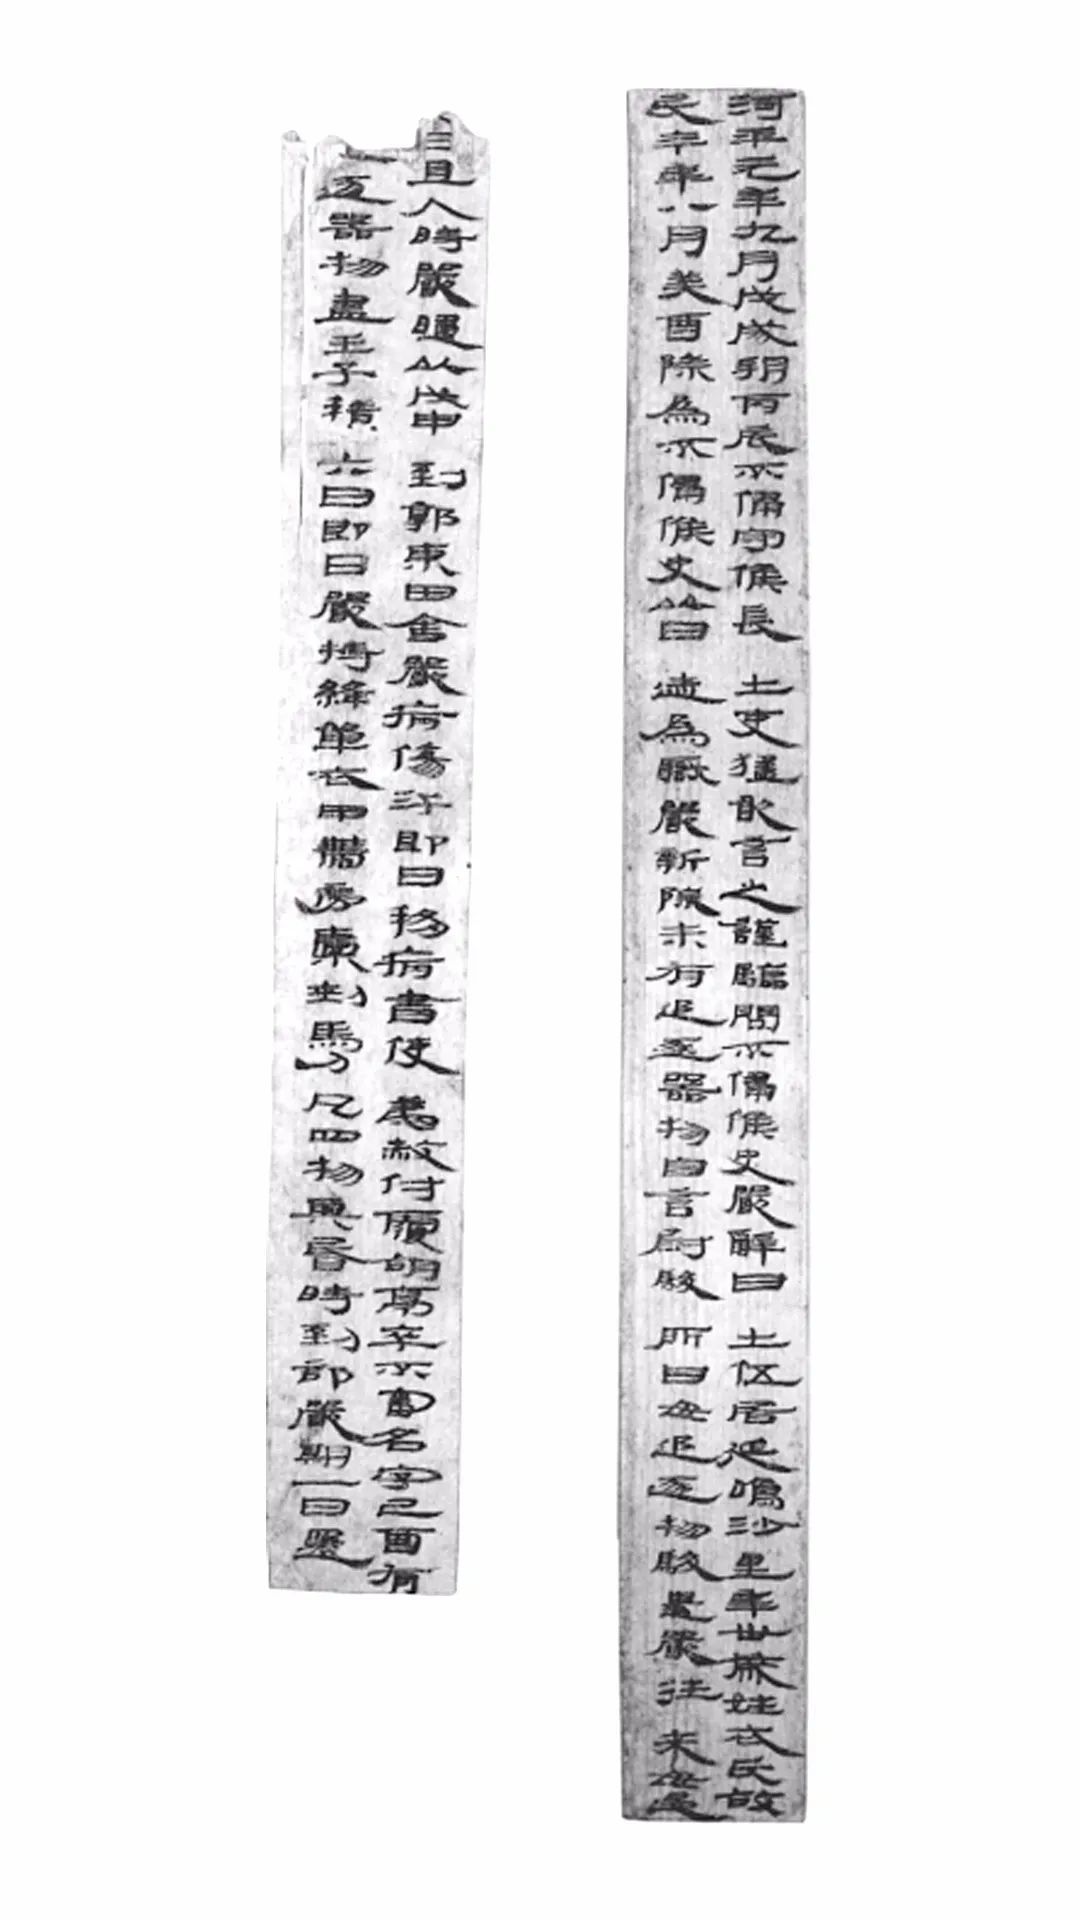 河平元年九月戊戌朔丙辰不侵守候長士吏猛敢言之謹驗問不侵候史嚴辭曰士伍居延鳴沙里年卅歲姓衣氏故
民今年八月癸酉除為不侵候史以日迹為職嚴新除未有追逐器物自言尉駿所曰毋追逐物駿遣嚴往來毋過
日且入時嚴歸以戊申到郭東田舍嚴病傷汗即日移病書使弟赦付覆胡亭卒不審名字己酉有
逐器物盡壬子積六日即日嚴持絳單衣甲帶旁橐刺馬刀凡四物其昏時到部嚴期一日還